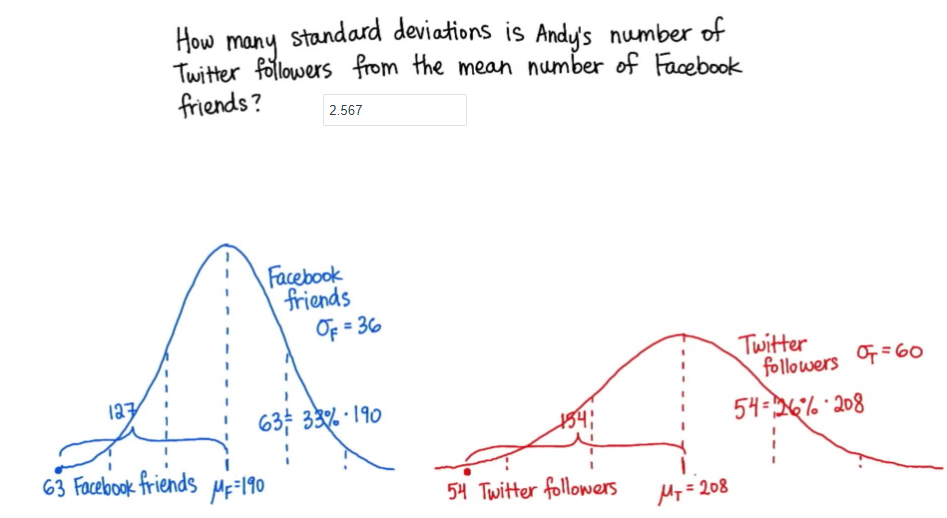 How many standard deviations is Andy's number of
Twitter followers from the mean number of Facebook
friends?
2.567
Facebook
friends
σF = 36
127
63 = 33% · 190
63 Facebook friends
μF=190
Twitter
followers
σT = 60
154
54 = 26% · 208
54 Twitter followers
μT = 208